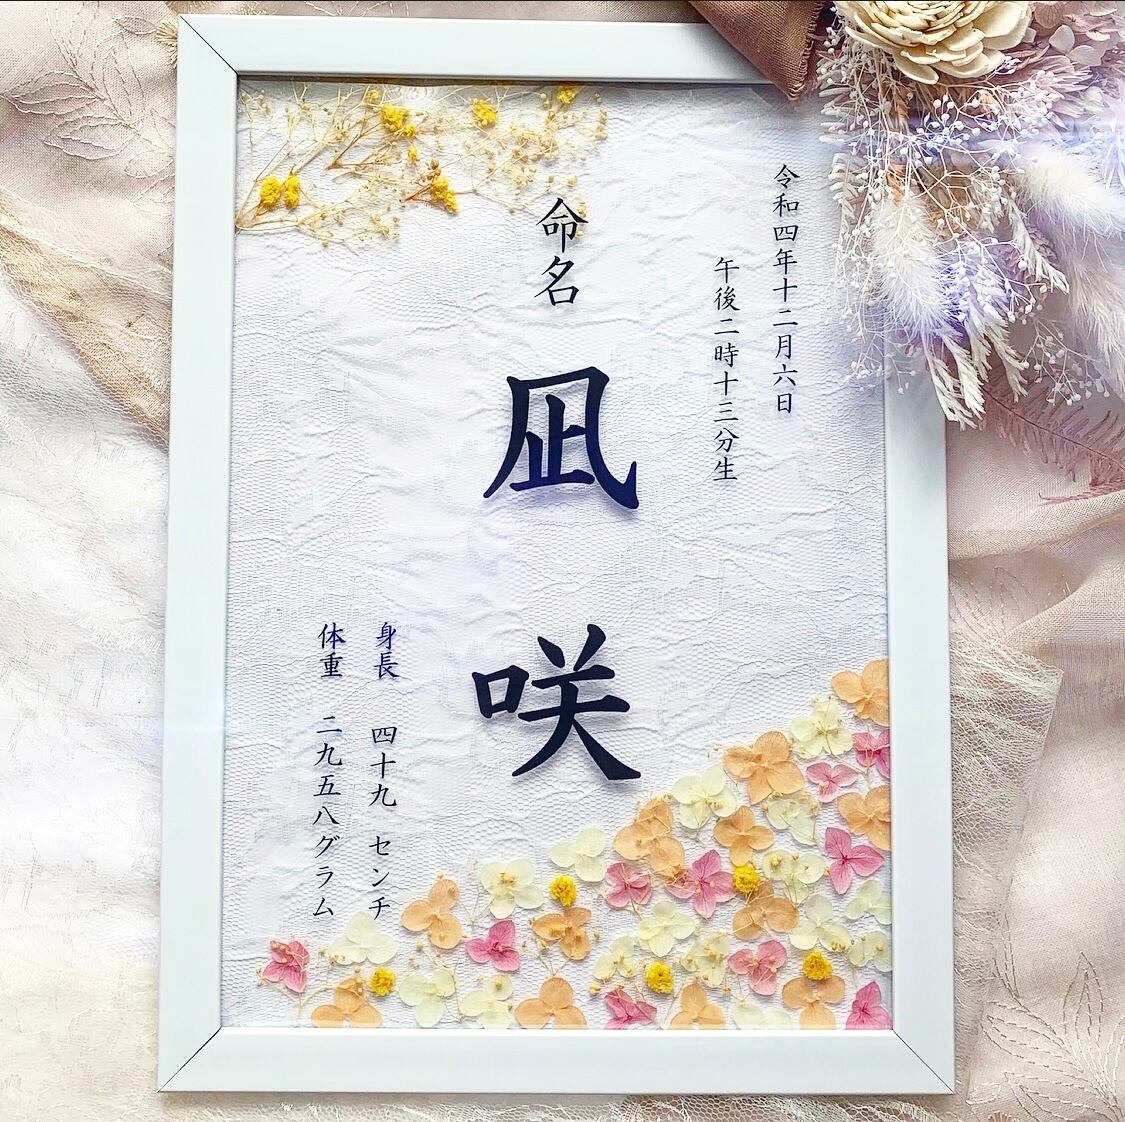 令和四年十二月六日
午後二時十三分生
命名
凪咲
身長 四十九 センチ
体重 二九五八グラム